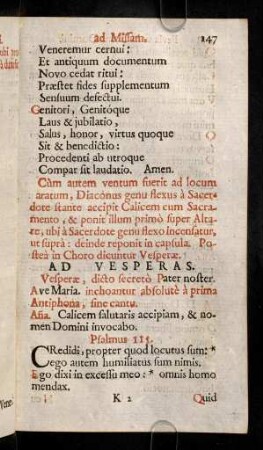 ad Missam. 147
Veneremur cernui:
Et antiquum documentum
Novo cedat ritui:
Præstet fides supplementum
Sensuum defectui.
Genitori, Genitoque
Laus & jubilatio,
Salus, honor, virtus quoque
Sit & benedictio:
Procedenti ab utroque
Compar sit laudatio. Amen.
Cùm autem ventum fuerit ad locum
aratum, Diacónus genu flexus à Sacer-
dote stante accipit Calicem cum Sacra-
mento, & ponit illum primò super Alta-
re, ubi à Sacerdote genu flexo incensatur,
ut suprà: deinde reponit in capsula. Po-
steà in Choro dicuntur Vesperæ.
AD VESPERAS.
Vesperæ, dicto secretò Pater noster.
Ave Maria. inchoantur absolutè à prima
Antiphona, sine cantu.
Aña. Calicem salutaris accipiam, & no-
men Domini invocabo.
Psalmus 115.
CRedidi, propter quod locutus sum: *
ego autem humiliatus sum nimis.
Ego dixi in excessu meo: * omnis homo
mendax.
K 2 Quid